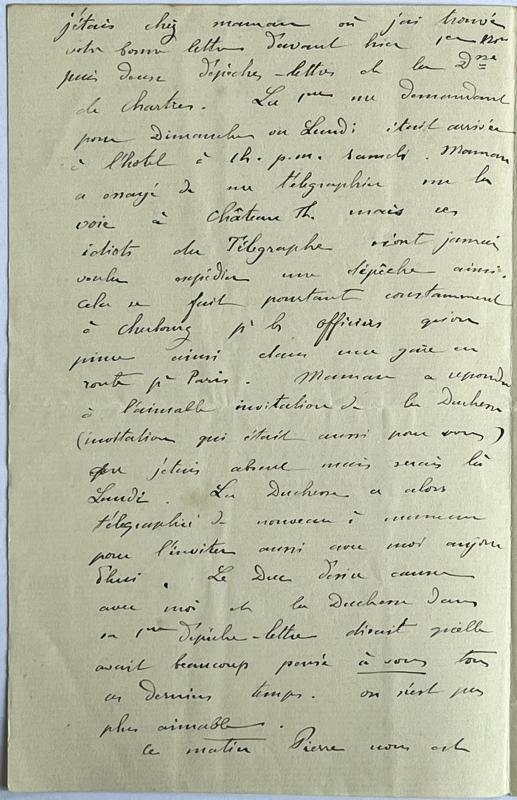 j'étais chez maman où j'ai trouvé
votre bonne lettre d'avant hier
puis deux dépêches-lettres de la Dsse
de Chartres. La 1ère me demandant
pour Dimanche ou Lundi était arrivée
à l'hotel à 1h. p.m. samedi. Maman
a essayé de me télégraphier sur la
voie à Château Th. mais ces
idiots du Télégraphe n'ont jamais
voulu expédier une dépêche ainsi.
cela se fait pourtant constamment
à Cherbourg pr les officiers qu'on
pince ainsi dans une gare en
route pr Paris. Maman a répondu
à l'aimable invitation de la Duchesse
(invitation qui était aussi pour vous)
que j'étais absent mais serais là
Lundi. La Duchesse a alors
télégraphié de nouveau à maman
pour l'inviter aussi avec moi aujour
d'hui. Le Duc désire causer
avec moi et la Duchesse dans
sa 1ère dépêche-lettre disait qu'elle
avait beaucoup pensé à vous tous
ces derniers temps. on n'est pas
plus aimable.
ce matin Pierre nous est